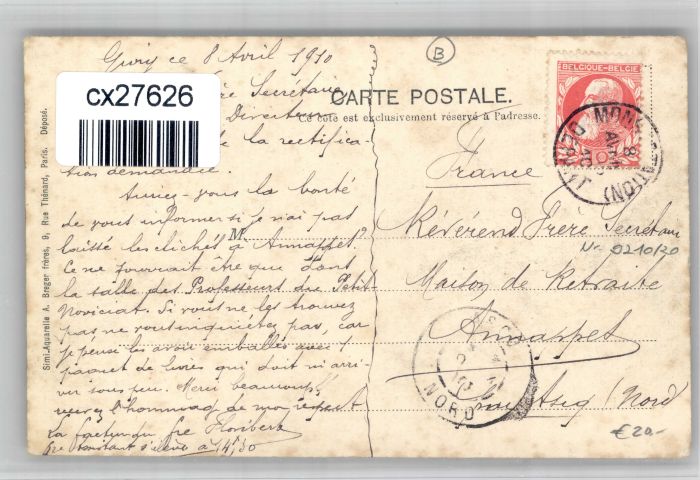 Givry ce 8 Avril 1910
Secrétaire
Directeur
cx27626
de la rectifica-
tion demandée.
Auriez-vous la bonté
de vous informer si je n'ai pas
laissé les clichés à Annappes?
Ce ne pourrait être que dans
la salle des Professeurs du Petit-
Noviciat. Si vous ne les trouvez
pas ne vous inquiétez pas, car
je pense les avoir emballés avec 1
paquet de livres qui doit m'arri-
ver sous peu. Merci beaucoup,
recevez l'hommage de mon respect
La facture du fre
s'élève à 14,50
Simi-Aquarelle A. Breger frères, 9, Rue Thénard, Paris. Déposé.
B
CARTE POSTALE.
Ce côté est exclusivement réservé à l'adresse.
BELGIQUE-BELGIE
10
8
France
M
Révérend Frère Secrétaire
Nr. 9210/20
Maison de Retraite
Annappes
(Nord)
NORD
€20.-